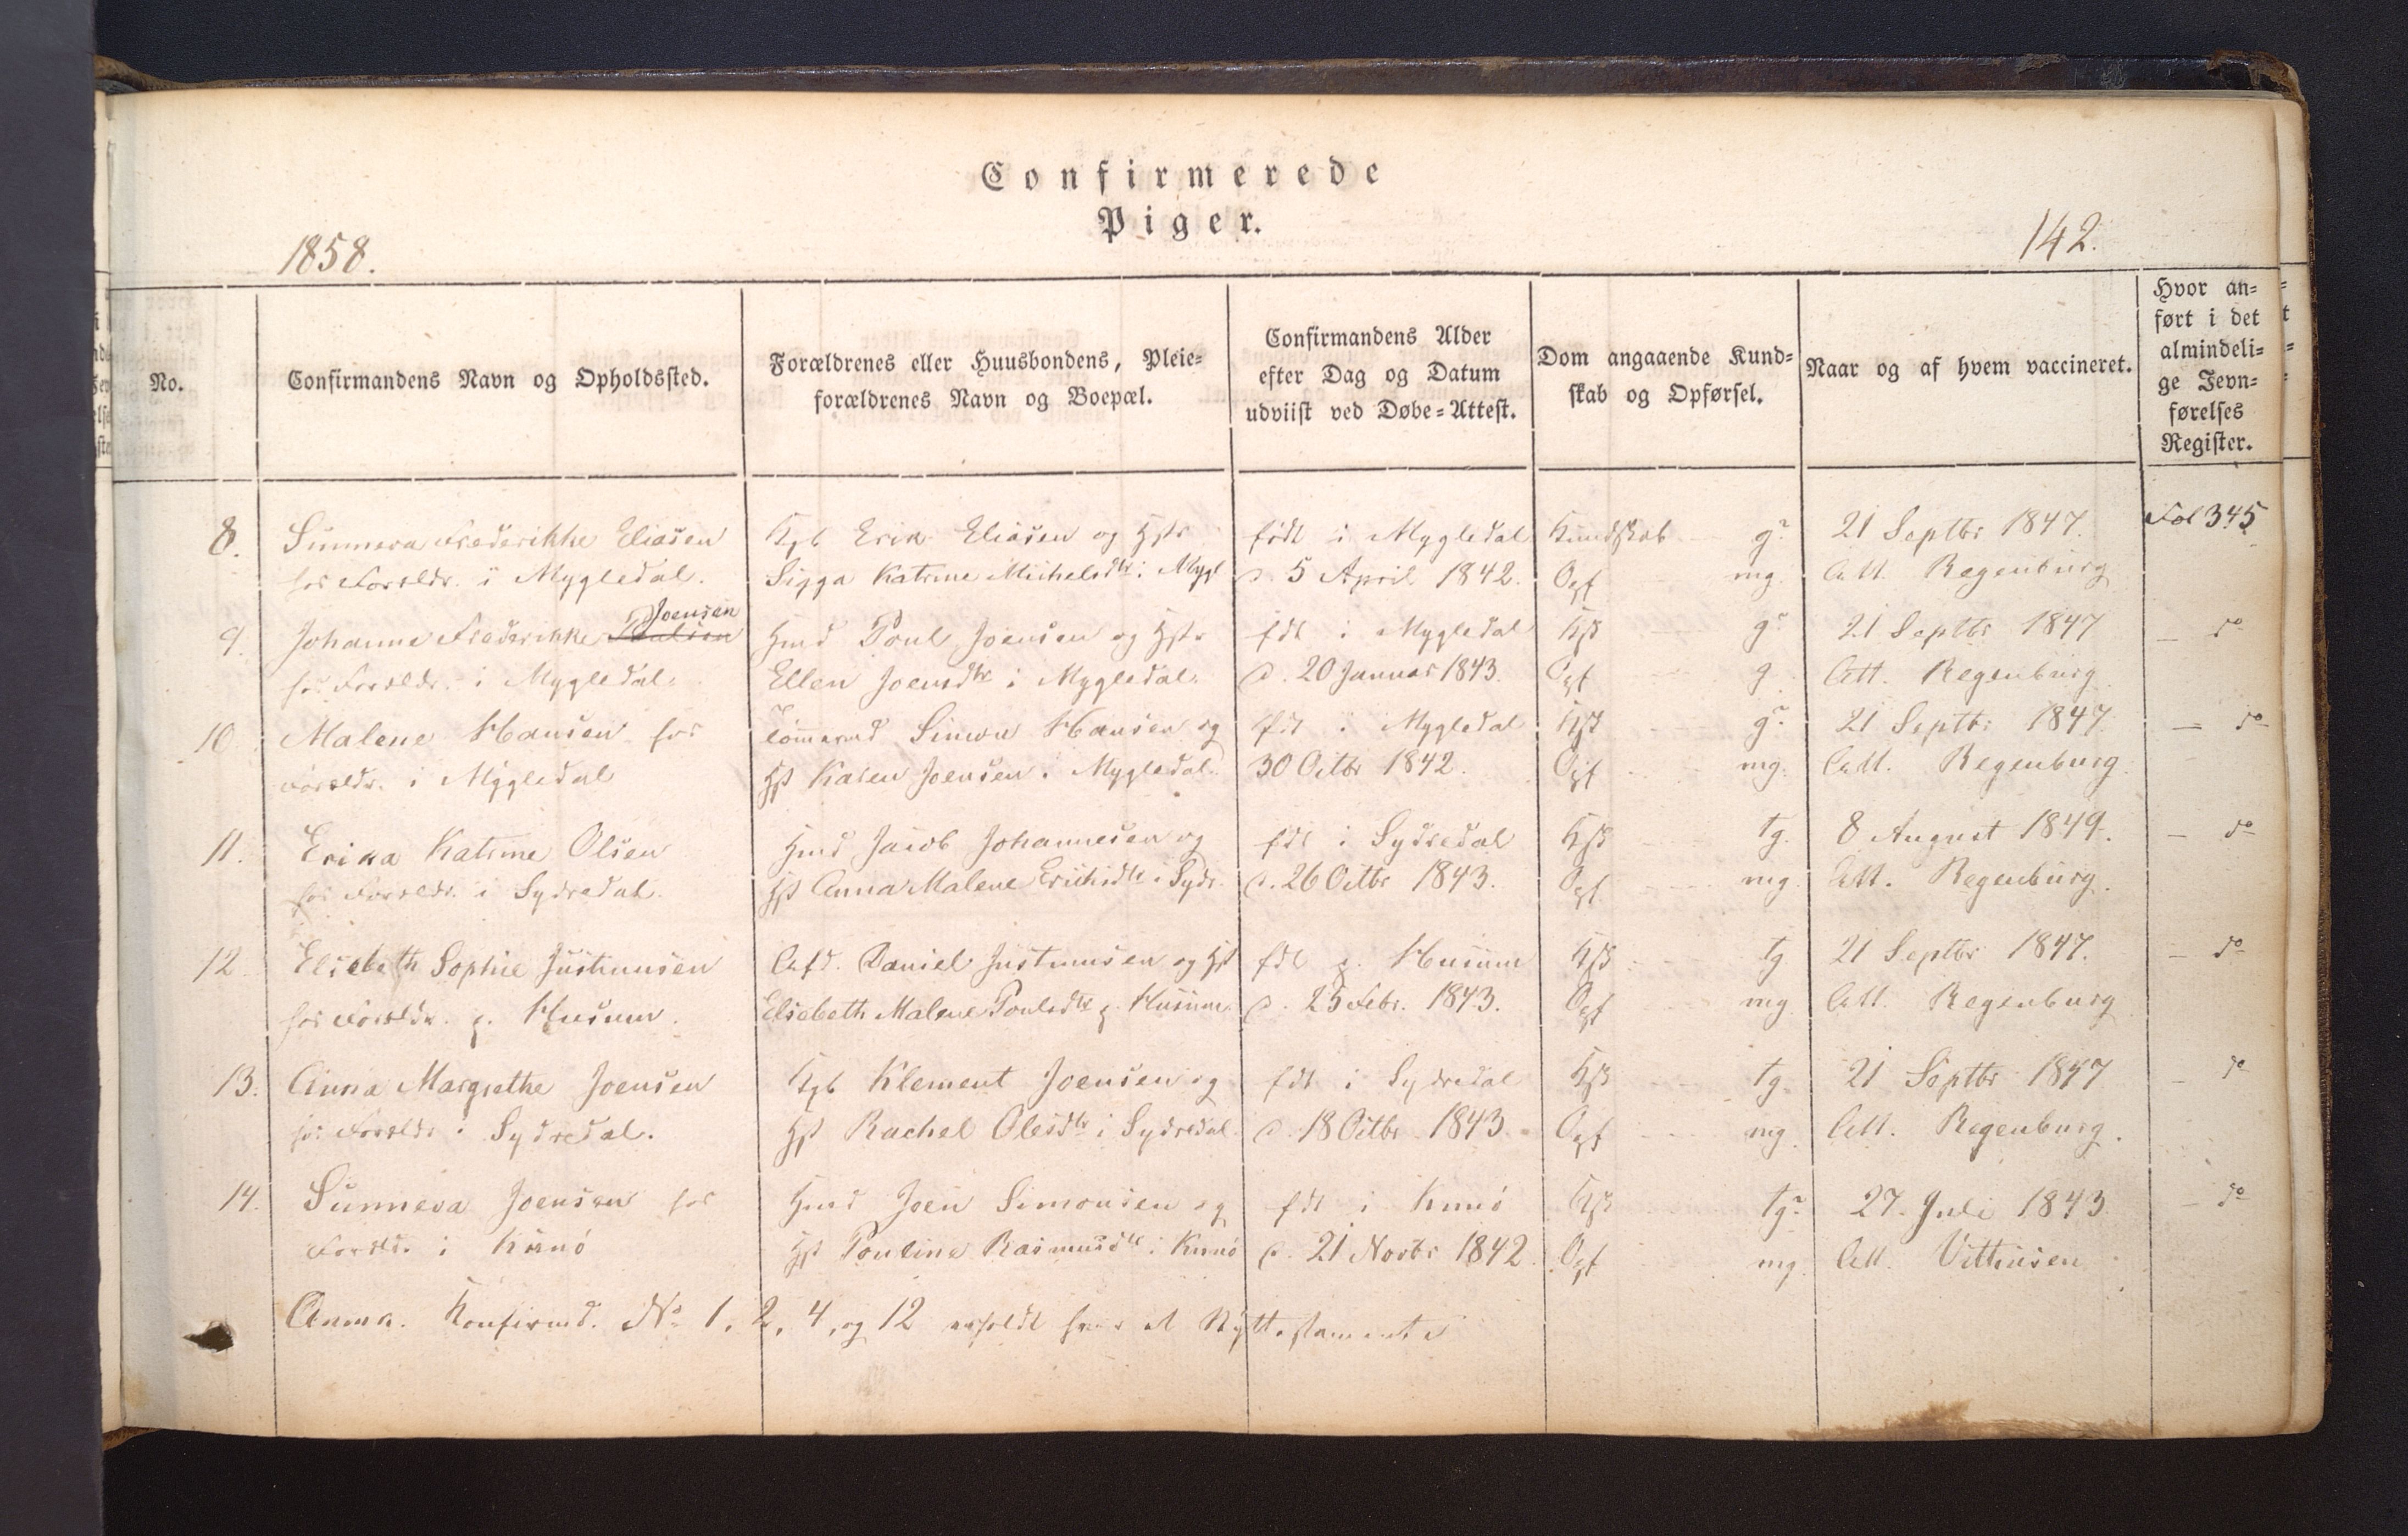 Confirmerede
Piger.
1858.
142.
No.
Confirmandens Navn og Opholdssted.
Forældrenes eller Huusbondens, Pleie=
forældrenes Navn og Boepæl.
Confirmandens Alder
efter Dag og Datum
udviist ved Døbe=Attest.
Dom angaaende Kund=
skab og Opførsel.
Naar og af hvem vaccineret.
Hvor an=
ført i det
almindeli=
ge Jevn=
førelses
Register.
8. Sunneva Frederikke Eliasen
hos Forældr. i Mygledal.
Kgb Erik Eliasen og Hstr
Sigga Katrine Michelsdtr i Mygl
født i Mygledal
d. 5 April 1842.
Kundskab g?
Opf mg.
21 Septbr 1847.
Att. Regenburg
Fol 345
9. Johanne Frederikke Joensen
hos Forældr. i Mygledal.
Hmd Poul Joensen og Hstr
Ellen Joensdtr i Mygledal.
fdt i Mygledal
d. 20 Januar 1843.
Kßk g?
Opf g
21 Septbr 1847
Att. Regenburg
— do
10. Malene Hansen hos
Forældr. i Mygledal
Simon Hansen og
Hst Karen Joensen i Mygledal.
fdt i Mygledal
30 Octbr 1842.
Kßk g?
Opf mg.
21 Septbr 1847.
Att. Regenburg.
— do
11. Erika Katrine Olsen
hos Forældr. i Sydredal.
Hmd Jacob Johannesen og
Hst Anna Malene Erichsdtr i Sydr.
fdt i Sydredal
d. 26 Octbr 1843.
Kßk tg.
Opf mg.
8 August 1849.
Att. Regenburg.
— do
12. Elsebeth Sophie Justinusen
hos Forældr. p. Husum.
Aftd. Daniel Justinusen og Hst
Elsebeth Malene Poulsdtr p. Husum.
fdt p. Husum
d. 25 Febr. 1843.
Kßk tg
Opf mg
21 Septbr 1847.
Att. Regenburg
— do
13. Anna Margrethe Joensen
hos Forældr i Sydredal.
Kgb Klement Joensen og
Hst Rachel Olesdtr i Sydredal
fdt i Sydredal
d. 18 Octbr 1843.
Kßk tg.
Opf mg.
21 Septbr 1847
Att. Regenburg.
— do
14. Sunneva Joensen hos
Forældr. i Kunø
Hmd Joen Simonsen og
Hst Pouline Rasmusdtr i Kunø
fdt i Kunø
d. 21 Novbr 1842.
Kßk tg?
Opf mg.
27. Juli 1843
Att. Vithusen
— do
Anmk. Konfirmd. No 1, 2, 4, og 12 erholdt hver et Nyttestamente